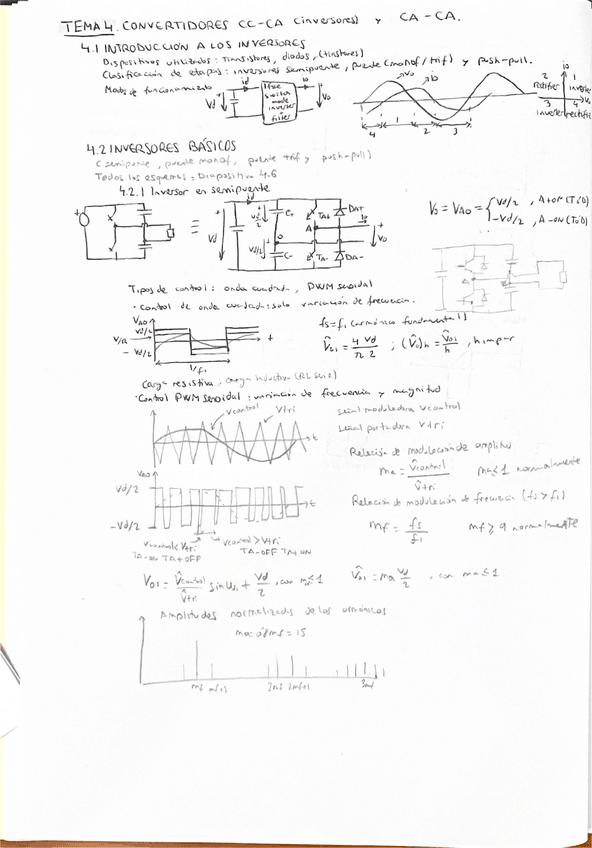 TEMA 4. CONVERTIDORES CC-CA (inversores) y CA-CA.
4.1 INTRODUCCION A LOS INVERSORES
Dispositivos utilizados: Transistores, diodos, (tiristores)
Clasificación de etapas: inversores semipuente, puente (monof/trif) y push-pull.
Modos de funcionamiento
id
io
Vd
1 fase
switch
mode
inverter
+
filter
Vo
Vo
io
4 1 2 3
io
2 1
Rectifier Inverter
3 4 Vo
Inverter rectifier
4.2 INVERSORES BÁSICOS
(semipuente, puente monof, puente trif y push-pull)
Todos los esquemas: Diapositiva 4.6
4.2.1 Inversor en semipuente
Vd
Vd/2
C+
TA+
DA+
io
A
o
Vo
Vd/2
C-
TA-
DA-
Vo = VAo = Vd/2, A+ON (TóD)
-Vd/2, A-ON (TóD)
Tipos de control: onda cuadrada, PWM senoidal
· Control de onda cuadrada: solo variación de frecuencia.
VAO
Vd/2
-Vd/2
t
1/f1
fs = f1 (armónico fundamental)
V̂o1 = 4/π Vd/2 ; (V̂o)h = V̂o1/h, h impar
Carga resistiva, carga inductiva (RL serie)
· Control PWM senoidal: variación de frecuencia y magnitud
Vcontrol
Vtri
t
señal moduladora Vcontrol
señal portadora Vtri
Relación de modulación de amplitud
ma = V̂control/V̂tri ma≤1 normalmente
VAO
Vd/2
-Vd/2
t
Relación de modulación de frecuencia (fs > f1)
mf = fs/f1 mf ≥ 9 normalmente
Vcontrol < Vtri
TA-ON TA+OFF
Vcontrol > Vtri
TA-OFF TA+ON
Vo1 = V̂control/V̂tri sin ω1 t Vd/2, con ma≤1 V̂o1 = ma Vd/2, con ma≤1
Amplitudes normalizadas de los armónicos
ma=0'8 mf=15
mf mf+2 2mf 2mf+1 3mf